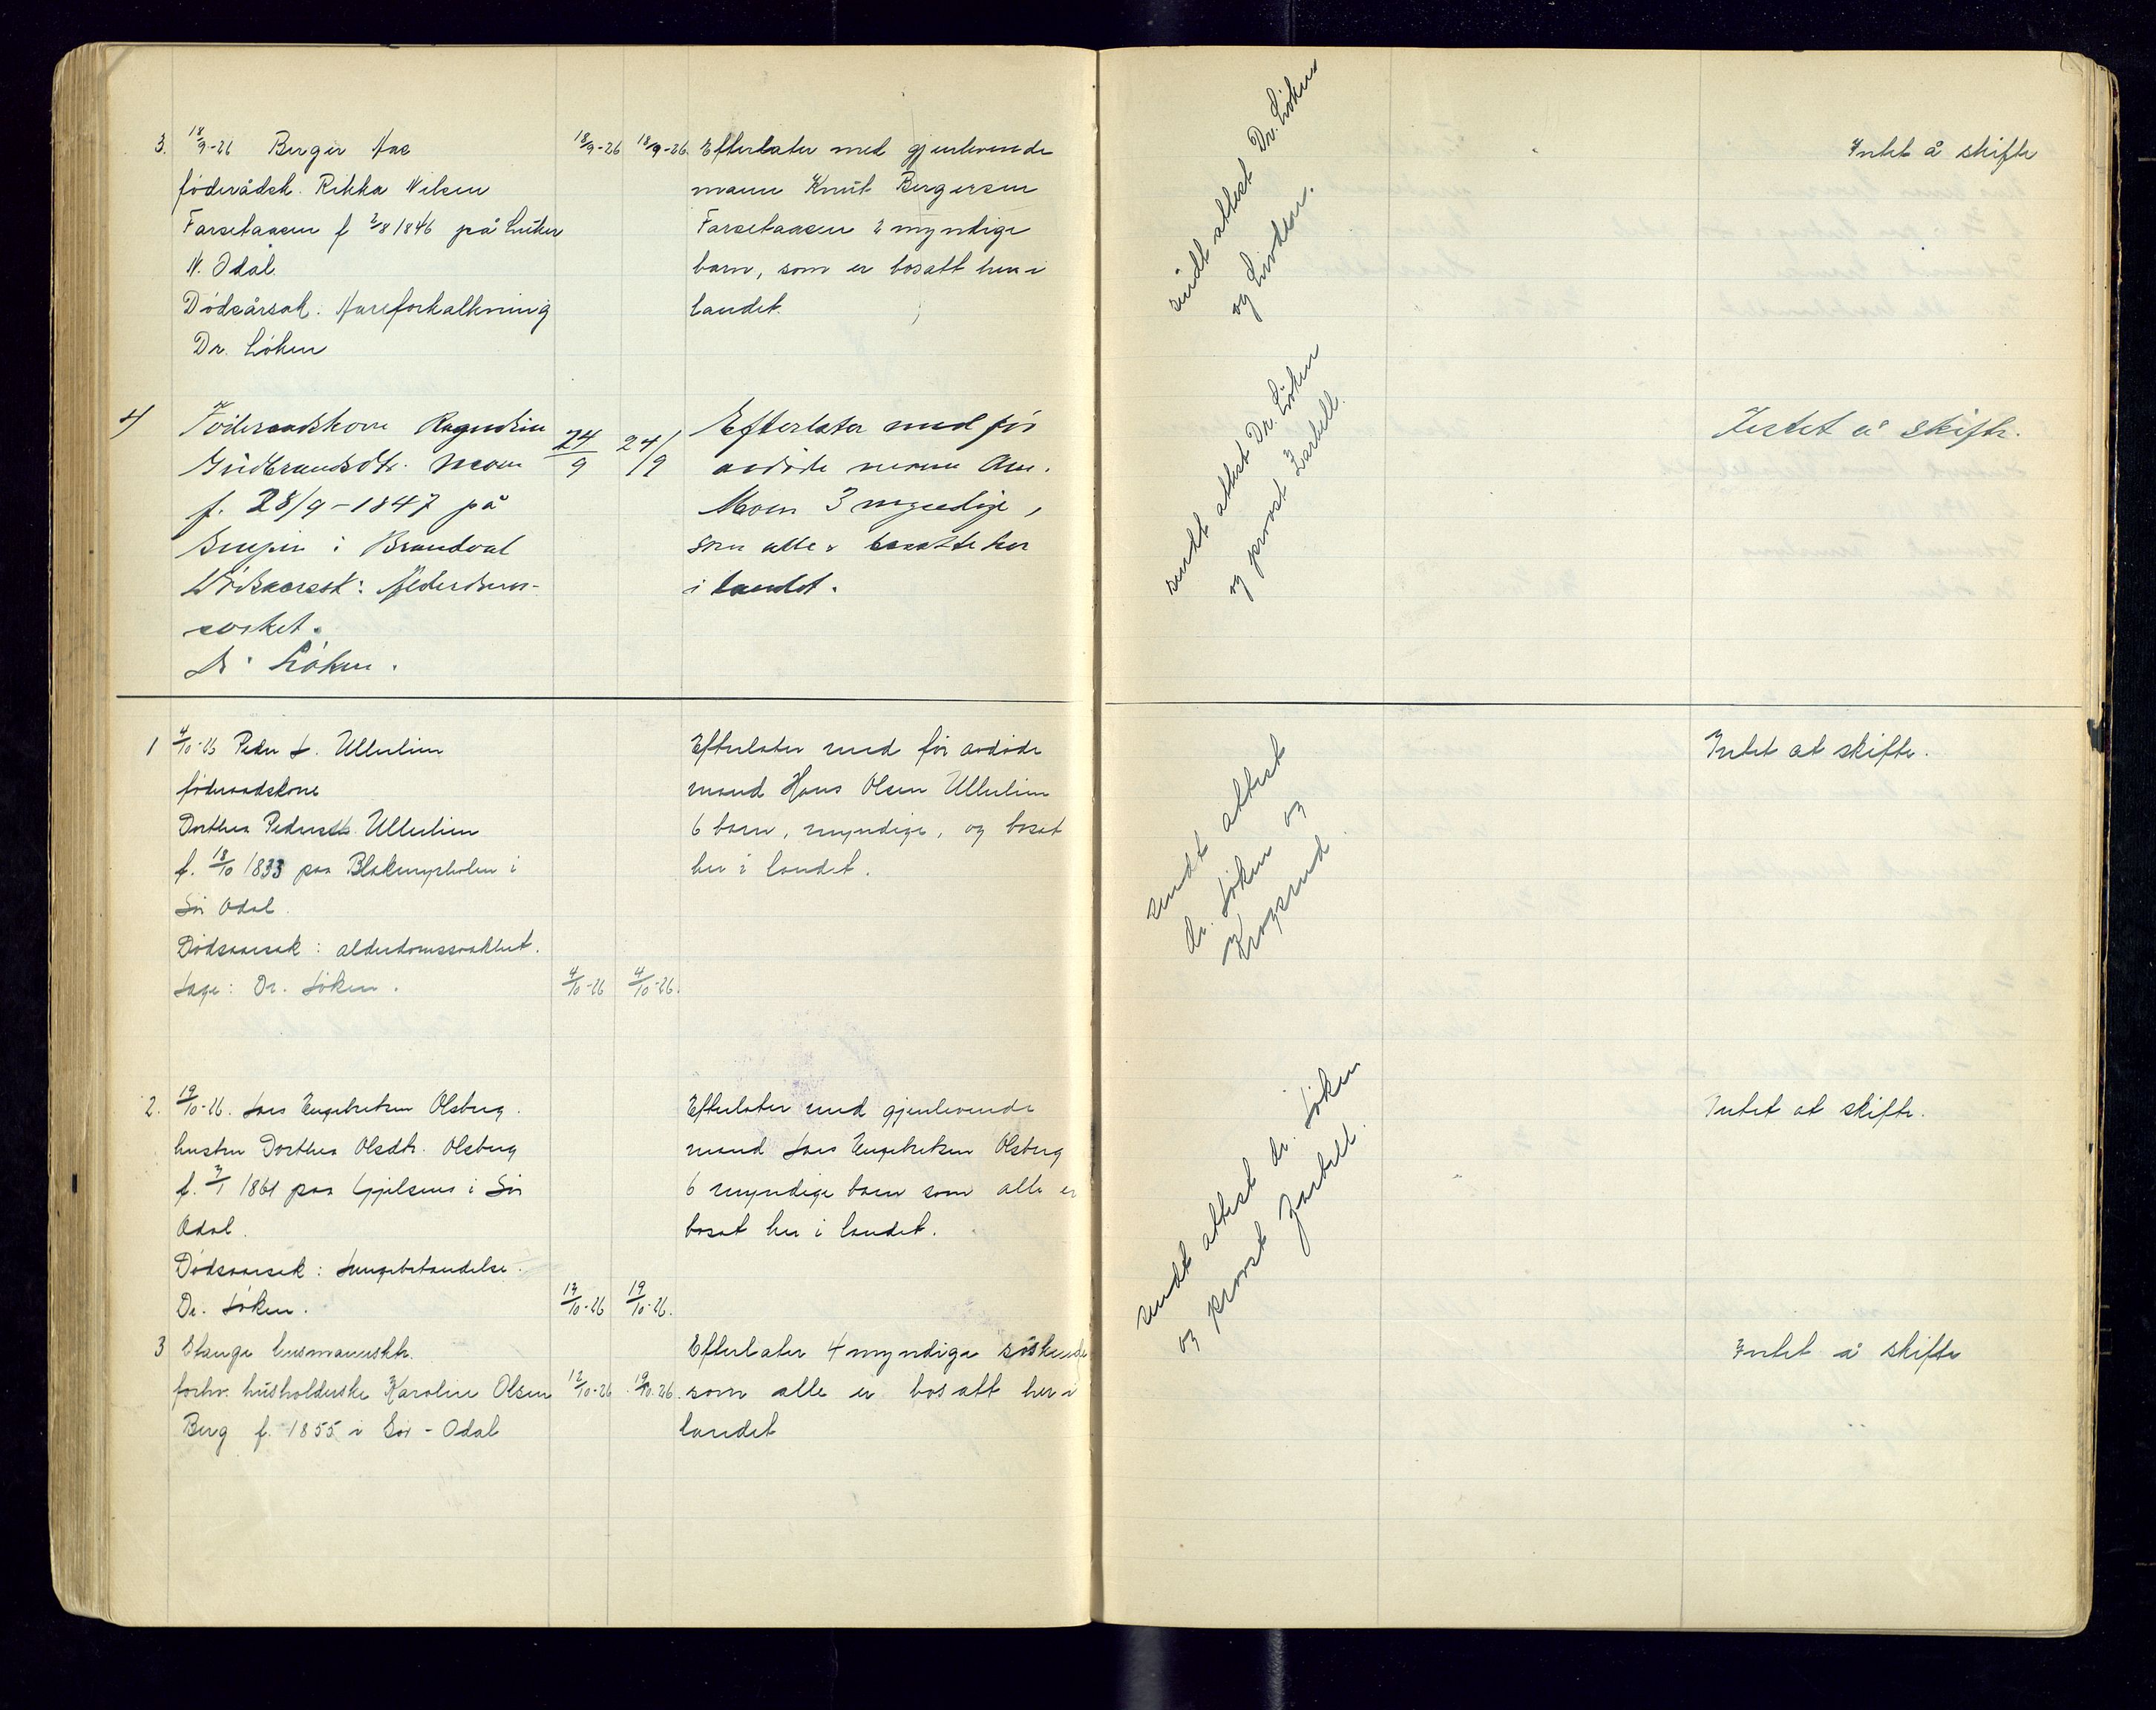 3. 18/9-26 Berger Aas
18/9-26 18/9-26. Efterlater med gjenlevende
föderådsk. Rikka Nilsen
mann Knut Bergersen
Farsetaasen f 2/8 1846 på
Farsetaasen 2 myndige
N. Odal
barn, som er bosatt her i
Dödsårsak: Aareforkalkning
landet.
Dr. Löken
sendt attest Dr. Löken
og
Intet å skifte
4) Föderaadskone
24/9 24/9 Efterlater med för
Gudbrandsdtr. Moen
avdöde mann Am.
f. 28/9-1847 på
Moen 3 myndige,
i Brandval
som alle er bosatte her
Dödsaarsak: Alderdoms-
i landet.
svaket.
Dr. Löken.
sendt attest Dr. Löken
og provst Zarbell.
Intet å skifte.
1 4/10-26 Peder L. Ullerlien
Efterlater med för avdöde
föderaadskone
mand Hans Olsen Ullerlien
Dorthea Pedersdtr. Ullerlien
6 barn, myndige, og bosat
f. 18/10 1833 paa i
her i landet.
Sör Odal.
Dödsaarsak: alderdomssvakhet.
Læge: Dr. Löken.
4/10-26 4/10-26.
sendt attest
dr. Löken og
Krogsrud
Intet at skifte.
2. 19/10-26. Lars Engebretsen Olsberg.
Efterlater med gjenlevende
hustru Dorthea Olsdtr. Olsberg
mand Lars Engebretsen Olsberg
f. 3/1 1861 paa i Sör
6 myndige barn som alle er
Odal.
bosat her i landet.
Dödsaarsak: Lungebetændelse.
Dr. Löken.
19/10-26 19/10-26.
sendt attest dr. Löken
og provst Zarbell.
Intet at skifte.
3 Stange husmannsktr.
Efterlater 4 myndige söskende
forhv. husholderske Karoline Olsen
12/10-26 19/10.26. som alle er bosatt her i
Berg f. 1855 i Sör-Odal
landet
Intet å skifte